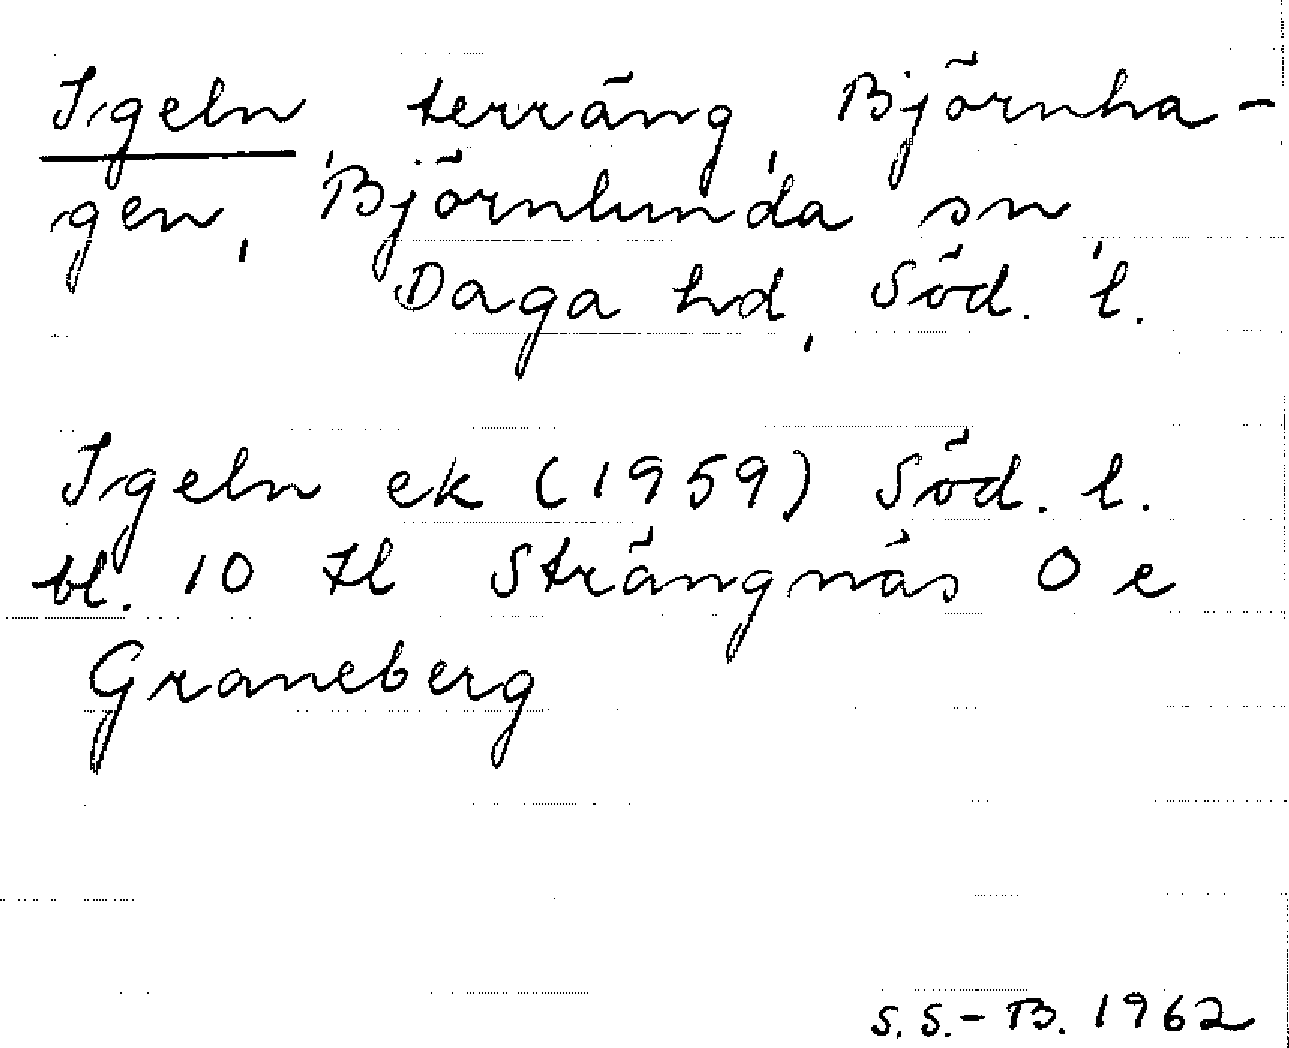 Igeln, terräng, Björnha-
gen, Björnlunda sn,
Daga hd, Söd. l.
Igeln ek (1959) Söd. l.
bl. 10 tl Strängnäs O e
Graneberg
S.S.-B. 1962